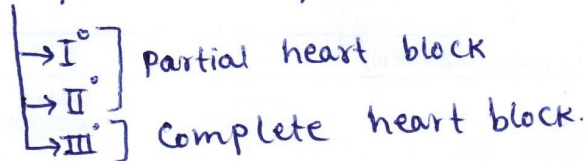 → I° ] Partial heart block
→ II° ]
→ III° ] Complete heart block.